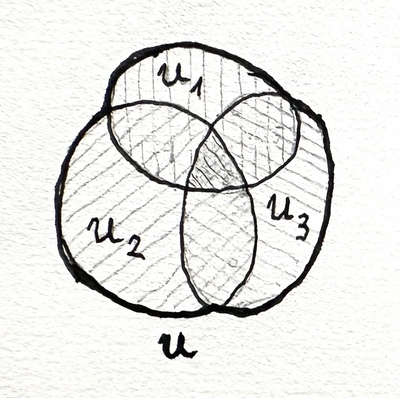 U₁
U₂
U₃
U